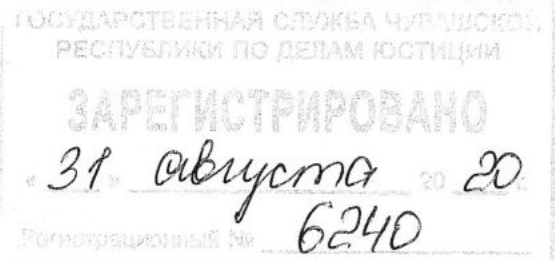 ГОСУДАРСТВЕННАЯ СЛУЖБА ЧУВАШСКОЙ
РЕСПУБЛИКИ ПО ДЕЛАМ ЮСТИЦИИ
ЗАРЕГИСТРИРОВАНО
« 31 » августа 20 20 г.
Регистрационный № 6240